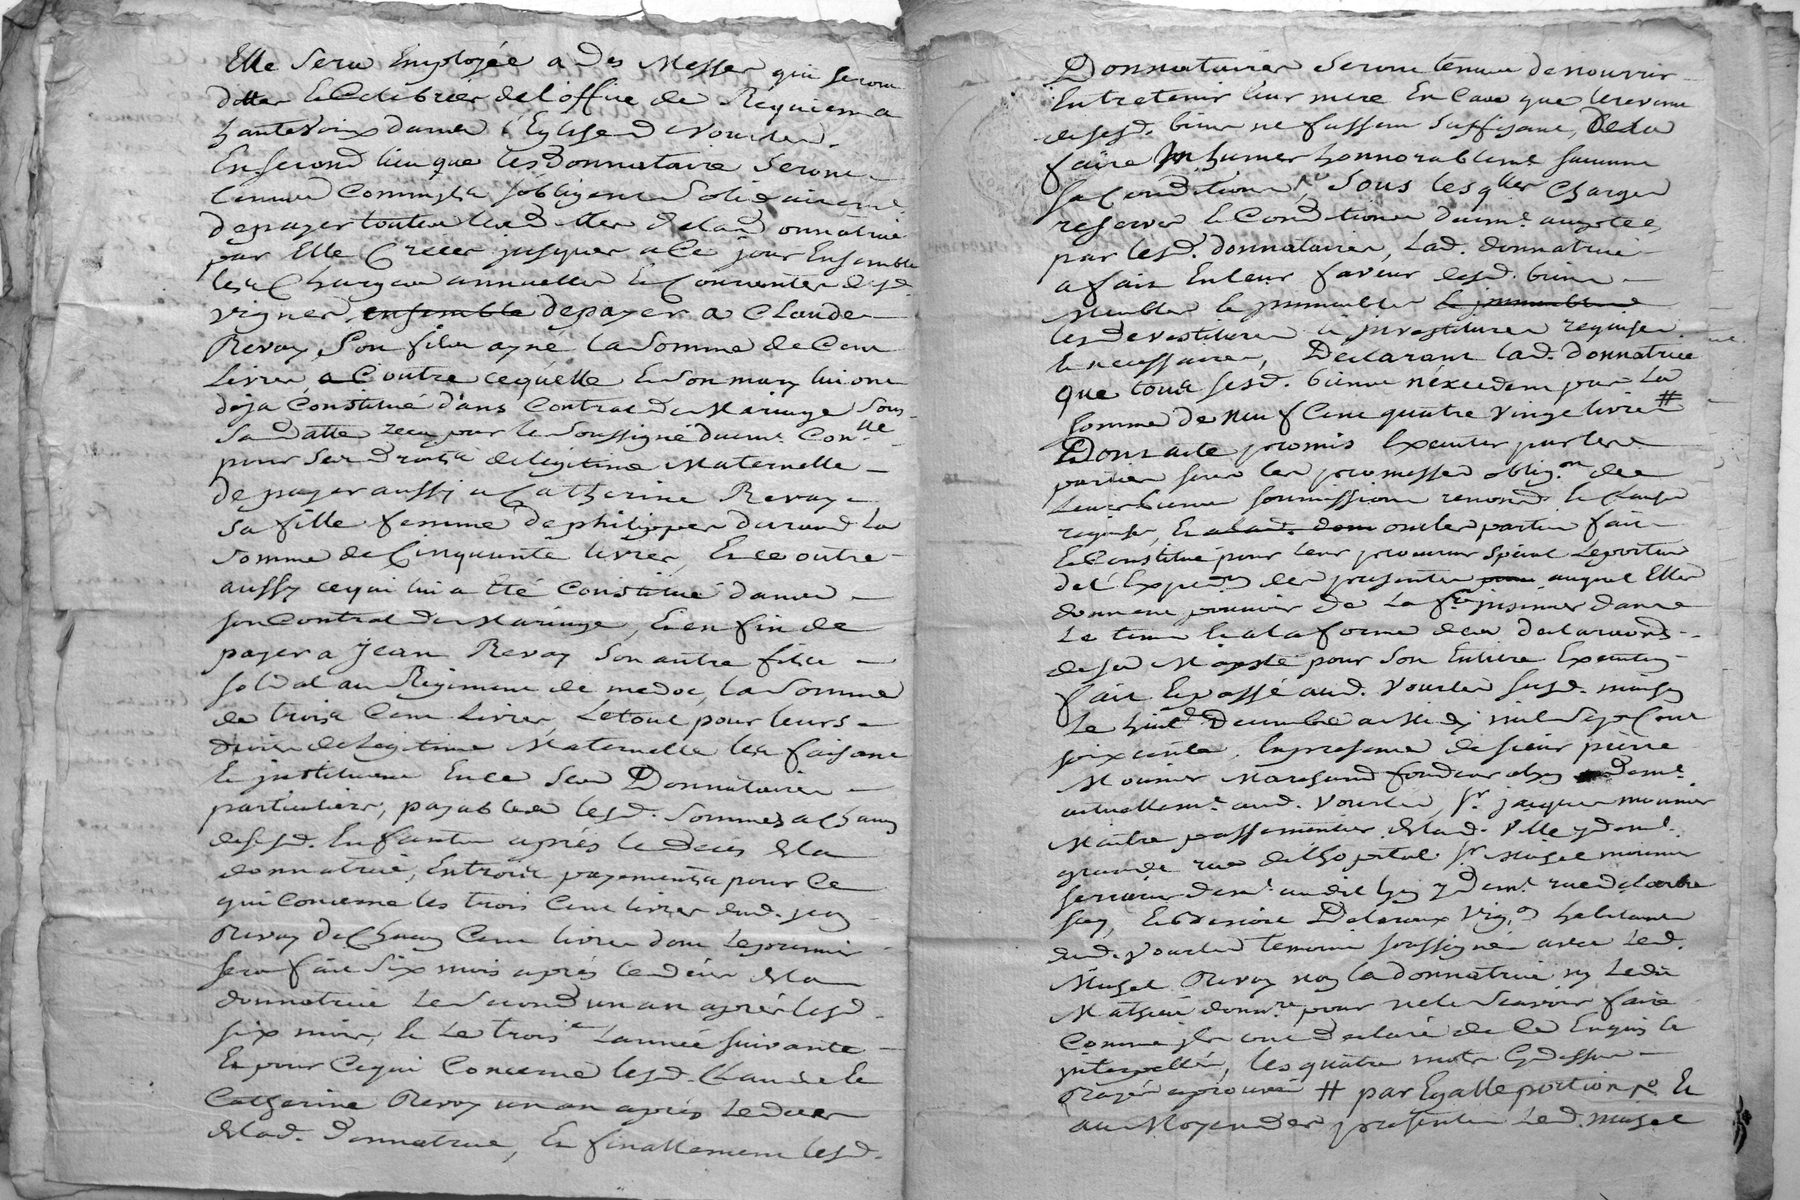 Elle sera Employée a des Messes qui seront
dittes & Celebrées de l'office de Requiem a
haute voix dans l'Eglise de Vourles.
En second lieu que les donnataires seront
tenus comm' ils s'obligent solidairemt.
de payer toutes les dettes de lad. donnatrice
par Elle Créées jusques a ce jour Ensemble
les Charges annuelles & Courantes desd.
vignes, ensemble de payer a Claude
Revay son fils ayné la somme de Cent
Livres a outre ce qu'elle & son mary lui ont
deja Constitué dans Contrat de Mariage sous
sa datte recu par le soussigné
pour ses droits de legitime Maternelle
de payer aussy a Catherine Revay
sa fille femme de philippes durand la
somme de Cinquante livres, Et ce outre
aussy ce qui lui a été Constitué dans
son Contrat de Mariage, Et en fin de
payer a Jean Revay son autre fils
soldat au Regiment de medoc, la somme
de trois Cent Livres, Le tout pour leurs
droits de Legitime Maternelle les faisant
& instituant En ce ses Donnataires
particuliers, payables lesd. sommes a Chacun
desd. Enfants aprés le decés de la
donnatrice, En trois payements pour Ce
qui Concerne les trois Cent livres dud. jean
Revay de Chacun Cent livres dont Le premier
sera fait six mois aprés le deces de la
donnatrice Le second un an aprés lesd.
six mois, & Le trois.e L'année suivante
Et pour Ce qui Concerne lesd. Claude &
Catherine Revay un an aprés Le deces
de lad. Donnatrice, En finallement lesd.
Donnataires seront tenus de nourrir
Entretenir leur mere En Cas que le revenu
de sesd. biens ne fussent suffisant, & de la
faire Inhumer honnorablemt. suivant
sa Condition, sous lesqlles Charges
reserves & Conditions acceptées
par lesd. donnataires, Lad. donnatrice
a fait En leur faveur desd. biens
Meubles & immeubles & immeubles
les devestitures & investitures requises
& necessaires, Declarant lad. donnatrice
que tous sesd. biens n'éxcedent pas La
somme de neuf Cent quatre vingt livres #
Dont acte promis Executer par les
parties sous les promesses obligon. de
Leurs biens soumissions renond. & clauses
requises, Et a lad. dont ont les parties fait
& Constitué pour leur procureur spécial Le porteur
de l'Expedon. des presentes pour auquel Elles
donnent pouvoir de La faire insinuer dans
Le tems & a la forme des declarations
de sa Majesté pour son Entiere Execution
fait & passé aud. Vourles susd. maison
Le huit Decembre mil sept Cent
soixante. En presence de sieur pierre
Mounier Marchand fondeur
actuellemt. aud. Vourles, Sr. jacques mounier
Maitre passementier de lad. ville y demt.
grande rue de l'hopital Sr Michel mounier
serrurier demt. audit Lyon y demt. rue de l'arbre
sec, Delaroux Vig.on habitant
dud. Vourles temoins soussignés avec led.
Michel Revay non la donnatrice ny Ledit
Mathieu donn.re pour ne le sçavoir faire
Comme ils ont declaré de Ce Enquis &
interpellés, Les quatre mots Cy dessus
Rayés aprouvés # par Egalle portion, Et
au Moyen des presentes Led. Michel